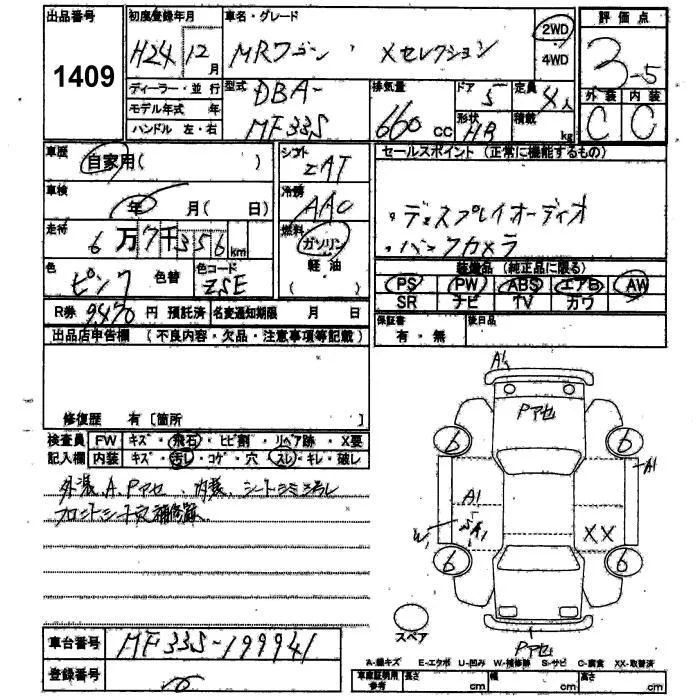 出品番号 初度登録年月 車名・グレード 評価点
1409 H24 12月 MRワゴン・Xセレクション 2WD 4WD 3-5
ディーラー・並行 型式 DBA-MF33S 排気量 660cc ドア 5 定員 4人 外装 内装
モデル年式 年 形状 HB 積載 kg C C
ハンドル 左・右
車歴 自家用( ) シフト エAT セールスポイント (正常に機能するもの)
車検 年 月( 日) 冷房 AAC ・ディスプレイオーディオ
走行 6万7千356km 燃料 ガソリン 軽油 ( ) ・バックカメラ
色 ピンク 色替 色コード ZSE 装備品 (純正品に限る)
PS PW ABS エアB AW
SR ナビ TV カワ
R券 9470円 預託済 名変通知期限 月 日 保証書 有・無 後日品
出品店申告欄 (不良内容・欠品・注意事項等記載)
修復歴 有 [箇所 ]
検査員 FW キズ・飛石・ヒビ割・リペア跡・X要
記入欄 内装 キズ・汚レ・コゲ・穴・スレ・キレ・破レ
外装、A、Pアセ、内装、シートシミ汚レ
A1
Pアセ
6 6
A1
A1
W1 A1 XX
6 6
スペア Pアセ
車台番号 MF33S-199941
登録番号
A-線キズ E-エクボ U-凹み W-補修跡 S-サビ C-腐食 XX-取替済
車庫証明用参考 長さ cm 幅 cm 高さ cm